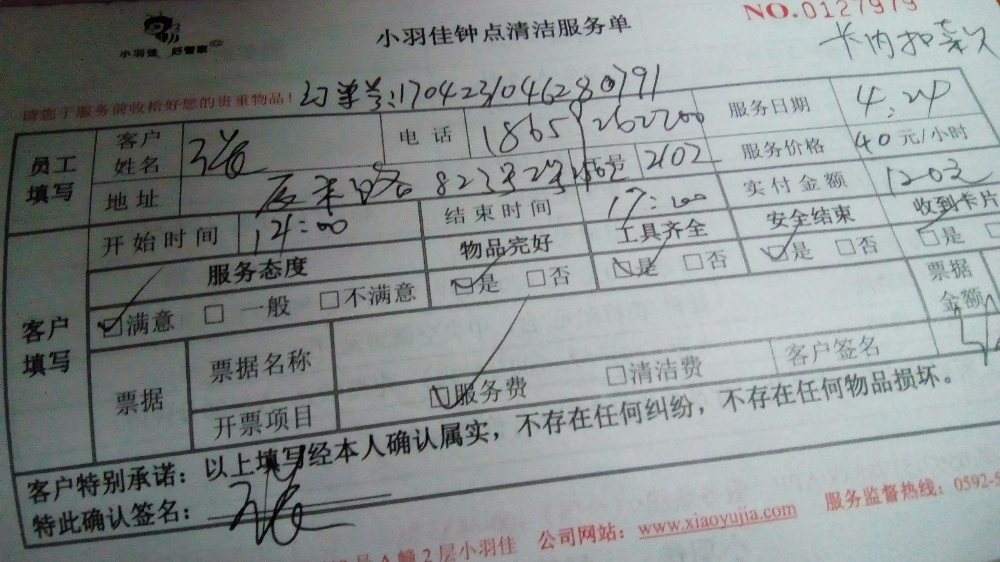 小羽佳 好管家
小羽佳钟点清洁服务单
NO.0127979
卡内扣款
请您于服务前收拾好您的贵重物品！
订单号:1704231046280791
员工填写 客户姓名 电话 服务日期 4.24
地址 2102 服务价格 40元/小时
开始时间 14:00 结束时间 17:00 实付金额 120元
客户填写 服务态度 物品完好 工具齐全 安全结束 收到卡片
☑满意 □一般 □不满意 ☑是 □否 ☑是 □否 ☑是 □否 ☑是 □
票据 票据名称 客户签名 票据金额
开票项目 ☑服务费 □清洁费
客户特别承诺：以上填写经本人确认属实，不存在任何纠纷，不存在任何物品损坏。
特此确认签名：
号A幢2层小羽佳 公司网站：www.xiaoyujia.com 服务监督热线：0592-5